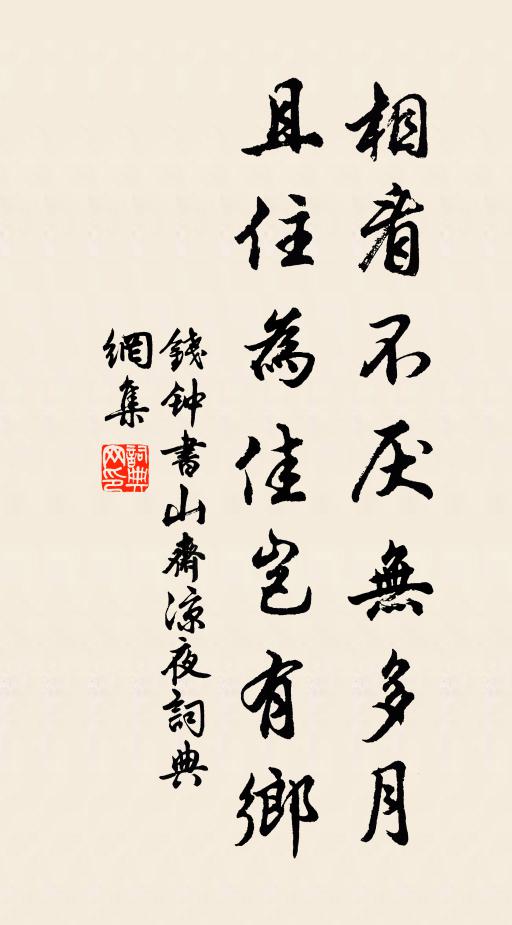 相看不厌無多月
且住為佳豈有鄉
錢钟書山齋凉夜詞典
網集
詞典
网印